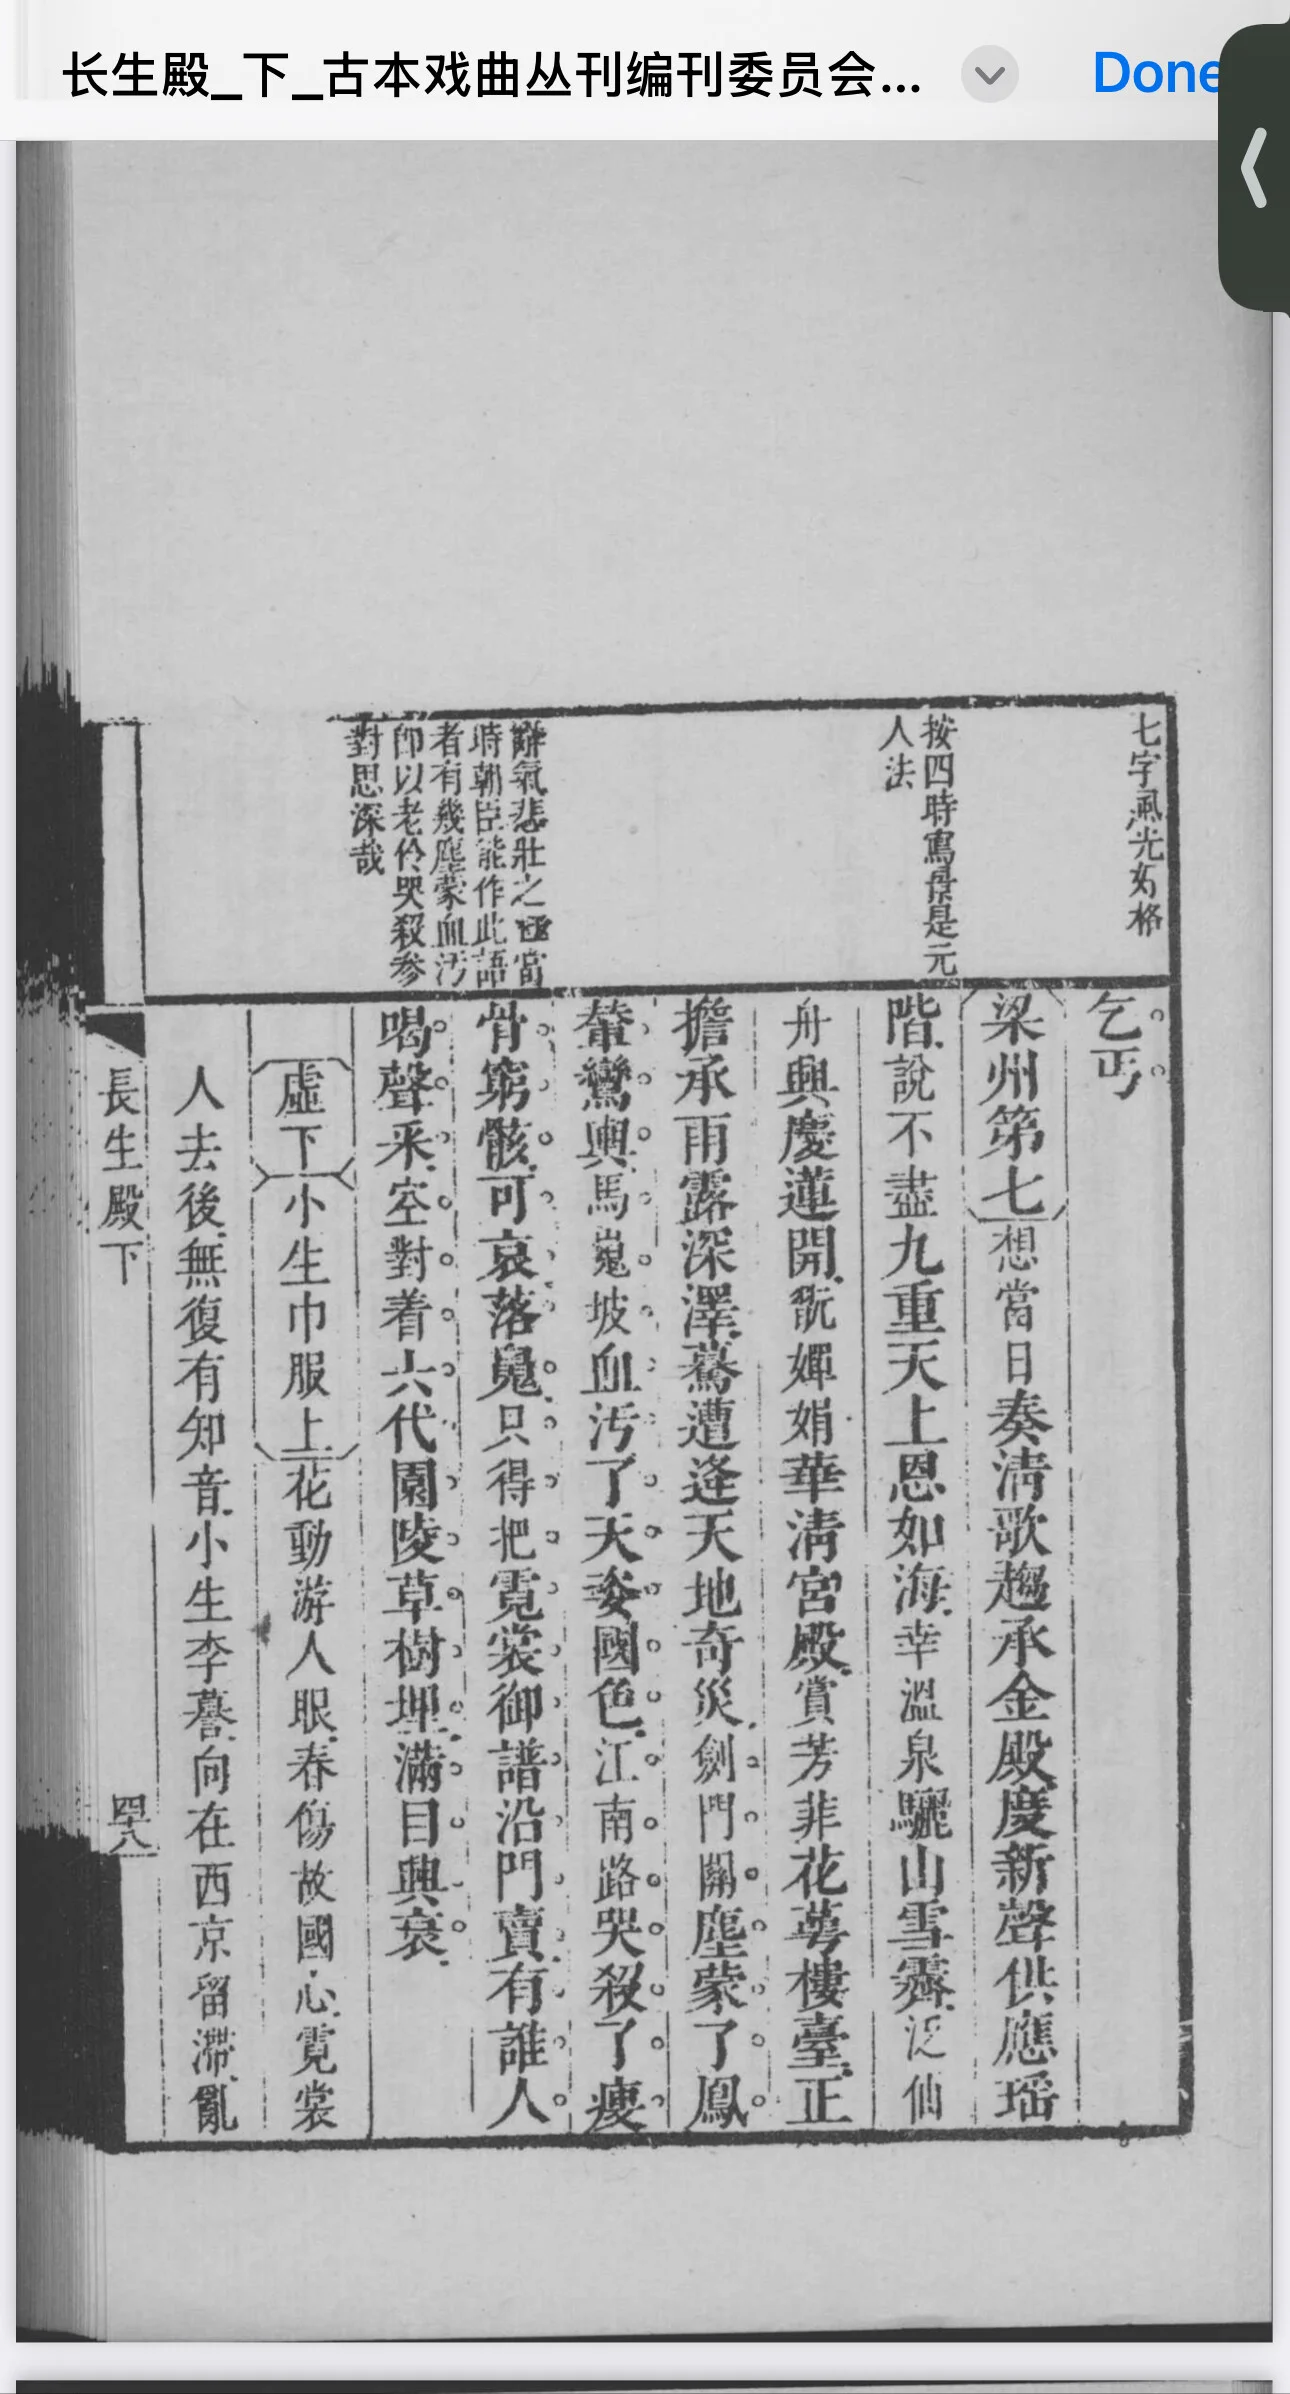 长生殿_下_古本戏曲丛刊编刊委员会...
Done
七字風光如格
按四時寫景是元
人法
辭氣悲壯之極當
時朝臣能作此語
者有幾塵蒙血汚
卽以老伶哭殺參
對思深哉
乞丐
梁州第七想當日奏淸歌趨承金殿度新聲供應瑤
階說不盡九重天上恩如海幸溫泉驪山雪霽泛仙
舟興慶蓮開翫嬋娟華淸宮殿賞芳菲花萼樓臺正
擔承雨露深澤驀遭逢天地奇災劍門關塵蒙了鳳
輦鸞輿馬嵬坡血汚了天姿國色江南路哭殺了瘦
骨窮骸可哀落魄只得把霓裳御譜沿門賣有誰人
喝聲采空對着六代園陵草樹埋滿目興衰
虛下小生巾服上花動游人眼春傷故國心霓裳
人去後無復有知音小生李謩向在西京留滯亂
長生殿下
四八